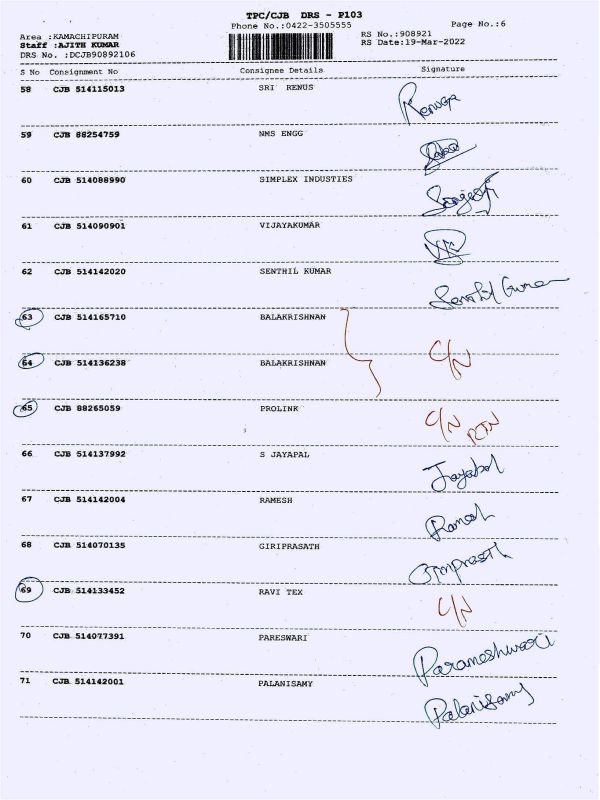 TPC/CJB DRS - P103
Phone No.:0422-3505555
Page No.:6
Area :KAMACHIPURAM
RS No.:908921
Staff :AJITH KUMAR
RS Date:19-Mar-2022
DRS No. :DCJB90892106
S No Consignment No Consignee Details Signature
58 CJB 514115013 SRI RENUS Renuga
59 CJB 88254759 NMS ENGG
60 CJB 514088990 SIMPLEX INDUSTIES
61 CJB 514090901 VIJAYAKUMAR
62 CJB 514142020 SENTHIL KUMAR Senthil Kumar
63 CJB 514165710 BALAKRISHNAN
64 CJB 514136238 BALAKRISHNAN C/N
65 CJB 88265059 PROLINK C/N RTN
66 CJB 514137992 S JAYAPAL Jayabal
67 CJB 514142004 RAMESH Ramesh
68 CJB 514070135 GIRIPRASATH Giriprasath
69 CJB 514133452 RAVI TEX C/N
70 CJB 514077391 PARESWARI Parameshwari
71 CJB 514142001 PALANISAMY Palanisamy